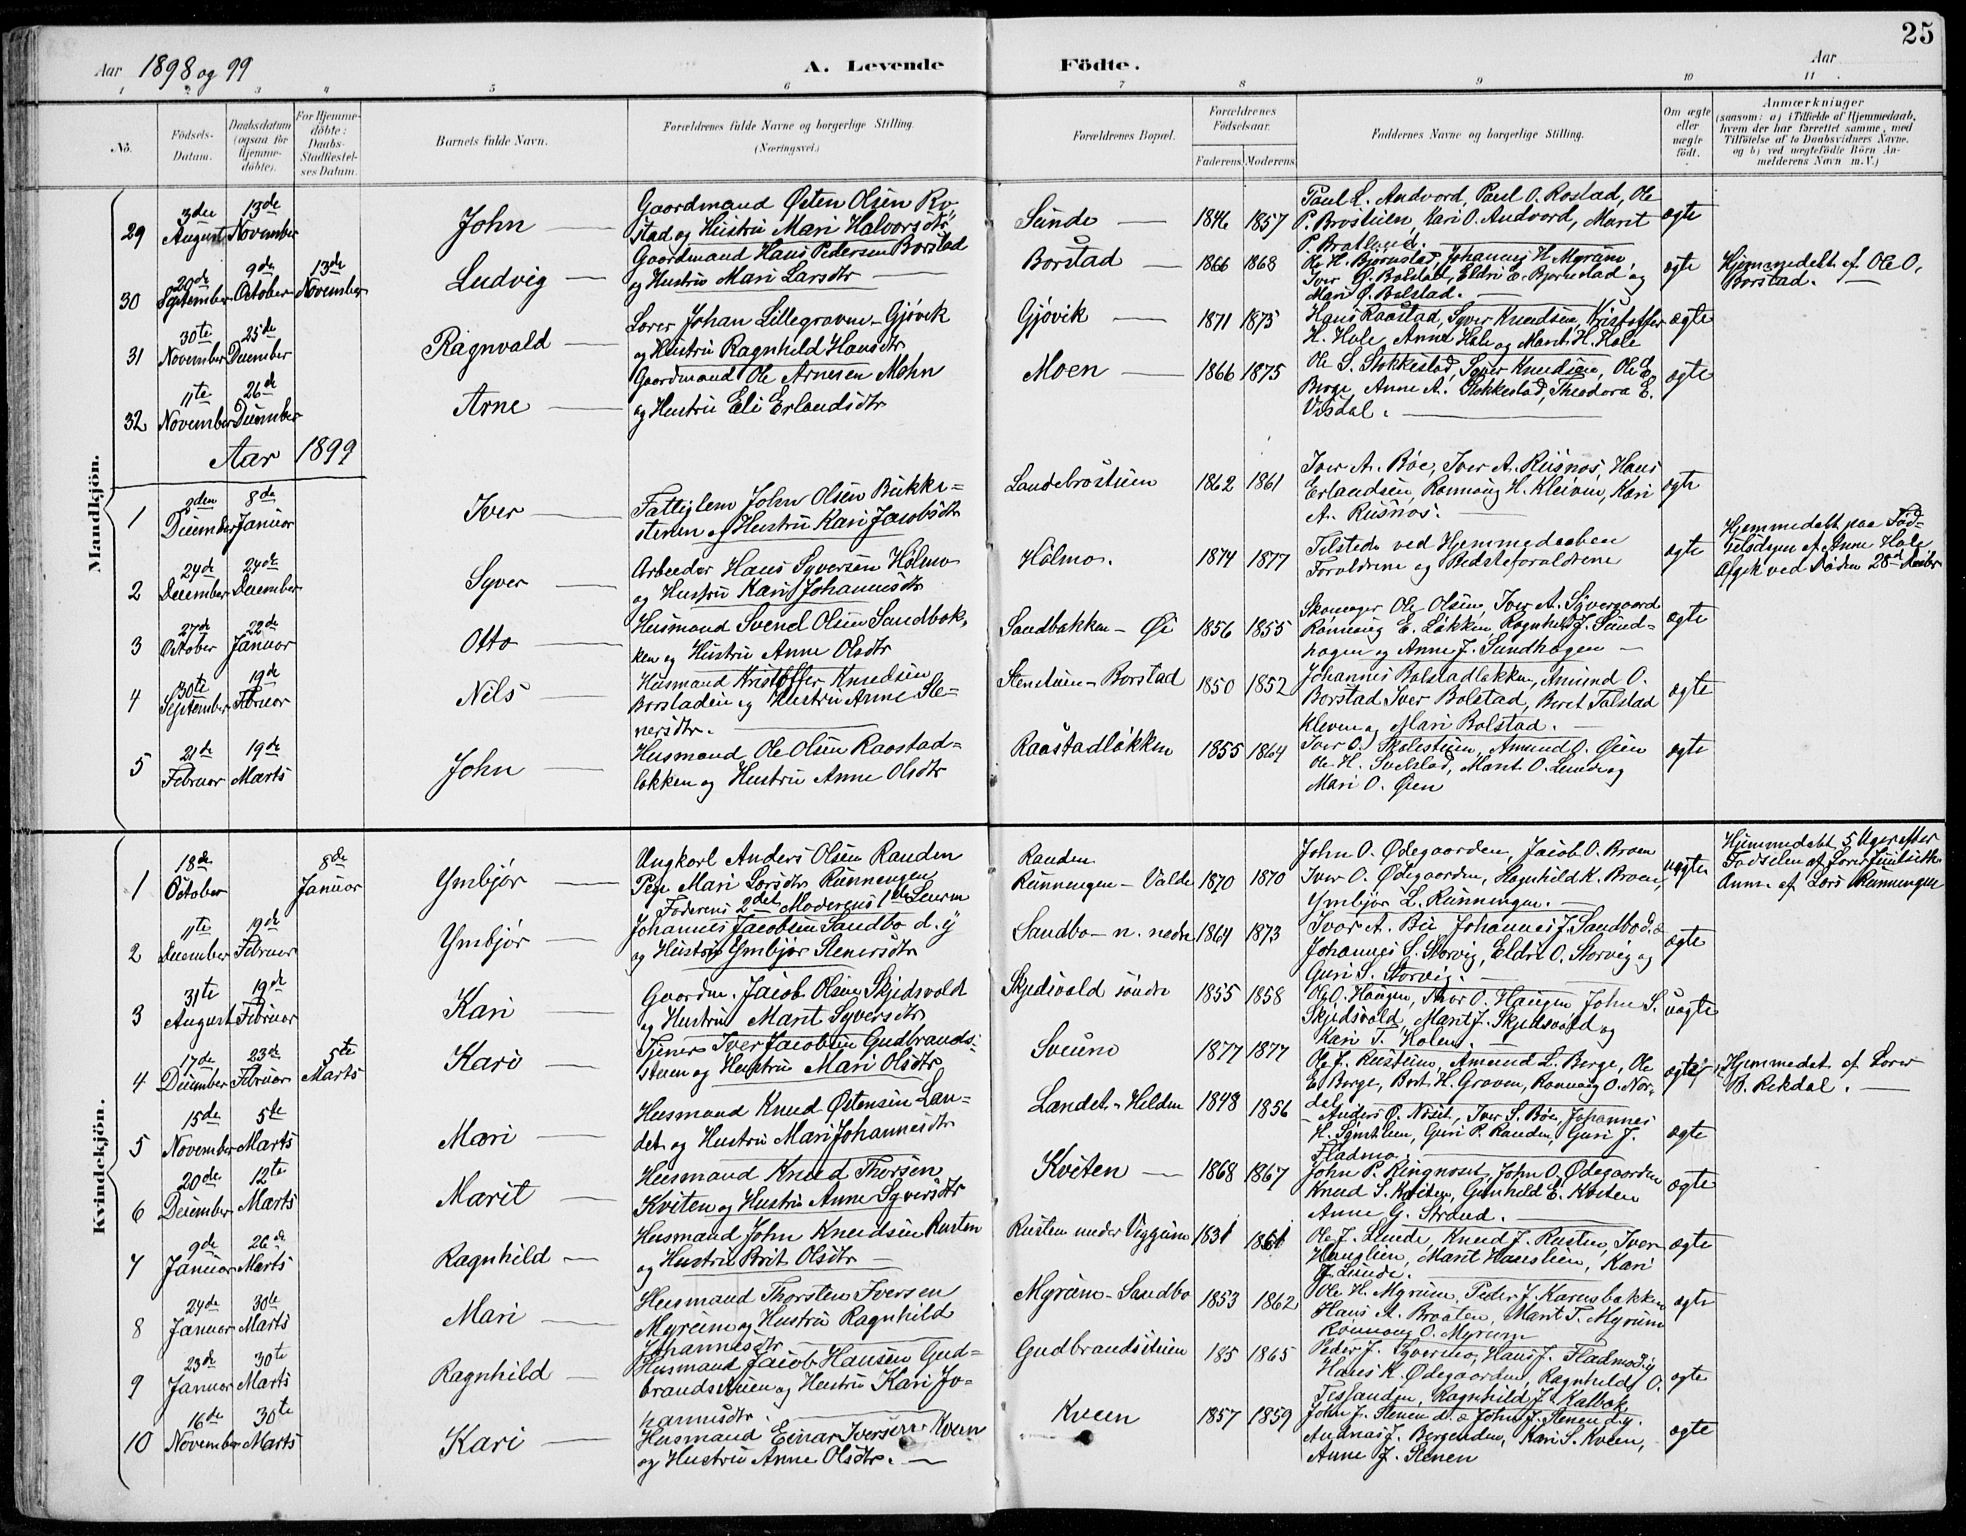 25
Aar 1898 og 99
A. Levende Födte.
Aar
1 2 3 4 5 6 7 8 9 10 11
No.
Födsels-Datum.
Daabsdatum (ogsaa for Hjemme-döbte).
For Hjemme-döbte: Daabs-Stadfæstel-ses Datum.
Barnets fulde Navn.
Forældrenes fulde Navne og borgerlige Stilling. (Næringsvei.)
Forældrenes Bopæl.
Forældrenes Födselsaar.
Faderens Moderens
Faddernes Navne og borgerlige Stilling.
Om ægte eller uægte födt.
Anmærkninger
(saasom: a) i Tilfælde af Hjemmedaab,
hvem der har forrettet samme, med
Tilföielse af to Daabsvidners Navne,
og b) ved uægtefödte Börn An-
melderens Navn m.V.)
Mandkjön.
29 3die August 13de November John — Gaardmand Østen Olsen Ro-
stad og Hustru Mari Halvorsdtr Sunde — 1846 1857 Paul L. Andvord, Paul O. Rostad, Ole
P. Brostuen, Kari O. Andvord, Marit
P. Bratland. ægte
30 20de September 9de October 13de November Ludvig — Gaardmand Hans Pedersen Borstad
og Hustru Mari Larsdtr — Borstad — 1866 1868 Ole H. Bjørnstad, Johannes H. Myrum,
Iver Ø. Bolstad, Eldri E. Bjørnstad og
Mari Ø. Bolstad. — ægte Hjemmedøbt af Ole O.
Borstad. —
31 30te November 25de December Ragnvald — Lærer Johan Lillegraven - Gjøvik
og Hustru Ragnhild Hansdtr Gjøvik — 1871 1875 Hans Raastad, Syver Knudsen, Kristoffer
H. Hole, Anne Hole og Marit H. Hole ægte
32 11te November 26de December Arne — Gaardmand Ole Arnesen Mohn
og Hustru Eli Erlandsdtr Moen — 1866 1875 Ole S. Stokkestad, Syver Knudsen, Ole E.
Berge, Anne A. Stokkestad, Theodora E.
Visdal. — ægte
Aar 1899
1 9den December 8de Januar Iver — Fattiglem John Olsen Bukke-
stenen og Hustru Kari Jacobsdtr Sandebrostuen 1862 1861 Iver A. Bøe, Iver A. Rusnes, Hans
Erlandsen, Rønnaug H. Kleiven, Kari
A. Rusnes. ægte
2 24de December 24de December Syver — Arbeider Hans Syversen Holmo
og Hustru Kari Johannesdtr Holmo. 1874 1877 Tilstede ved Hjemmedaaben
Forældrene og Bedsteforældrene ægte Hjemmedøbt paa Fød-
selsdagen af Anne Hole
Afgik ved Døden 28de Decbr
3 27de October 22de Januar Otto — Husmand Svend Olsen Sandbak-
ken og Hustru Anne Olsdtr Sandbakken - Øi 1856 1855 Skomager Ole Olsen, Iver A. Syvergaard
Rønnaug E. Løkken, Ragnhild J. Sund-
hagen og Anne J. Sundhagen — ægte
4 30te September 19de Februar Nils — Husmand Kristoffer Knudsen
Borstadeie og Hustru Anne Ste-
nersdtr. — Stenstuen - Borstad 1850 1852 Johannes Bolstadløkken, Amund O.
Borstad, Iver Bolstad, Beret Tolstad
Kleven og Mari Bolstad. — ægte
5 21de Februar 19de Marts John — Husmand Ole Olsen Raastad-
løkken og Hustru Anne Olsdtr Raastadløkken 1855 1864 Iver O. Skolestuen, Amund O. Øien
Ole H. Svelstad, Marit O. Lunde og
Mari O. Øien ægte
Kvindekjön.
1 18de October 8de Januar Ymbjør — Ungkarl Anders Olsen Randen
Pige Mari Larsdtr Runningen
Faderens 2det Moderens 1ste Leierm Randen
Runningen - Valde 1870 1870 John O. Ødegaarden, Jacob O. Broen
Iver O. Ødegaarden, Ragnhild K. Broen,
Ymbjør L. Runningen. — uægte Hjemmedøbt 5 Uger efter
Fødselen af Lærer
Anm. af Lars Runningen
2 11te December 19de Februar Ymbjør — Johannes Jacobsen Sandbo d. y
og Hustru Ymbjør Stenersdtr Sandbo - n. nedre 1864 1873 Iver A. Bu, Johannes J. Sandbo d. æ
Johannes S. Storvig, Eldri O. Storvig og
Guri S. Storvig. — ægte
3 31te August 19de Februar Kari — Gaardm. Jacob Olsen Skjedsvold
og Hustru Marit Syversdtr Skjedsvold søndre 1855 1858 Ole O. Haugen, Thor O. Haugen, John S.
Skjedsvold, Marit J. Skjedsvold og
Kari T. Holen. — uægte
4 17de December 23de Februar 5te Marts Kari — Tjener Iver Jacobsen Gudbrands-
stuen og Hustru Mari Olsdtr Sveino 1877 1877 Ole J. Rustum, Amund L. Berge, Ole
E. Berge, Berit H. Graven, Rønnaug O. Nor-
dal ægte Hjemmedøbt af Lærer
B. Rekdal. —
5 15de November 5te Marts Mari — Husmand Knud Østensen Lan-
det og Hustru Mari Johannesdtr Landet - Helden 1848 1856 Anders O. Noset, Iver S. Bøe, Johannes
H. Søndtlien, Guri P. Randen, Guri J.
Fladmo. ægte
6 20de December 12te Marts Marit — Husmand Knud Thorsen
Kviten og Hustru Anne Syversdtr Kviten — 1868 1867 John P. Ringnoset, John O. Ødegaarden
Knud S. Kviten, Gunhild E. Kviten
Anne G. Strand. — ægte
7 9de Januar 26de Marts Ragnhild — Husmand John Knudsen Rusten
og Hustru Brit Olsdtr — Rusten under Viggum 1831 1861 Ole J. Lunde, Knud J. Rusten, Iver
Hauglien, Marit Hauglien, Kari
J. Lunde. — ægte
8 24de Januar 30te Marts Mari — Husmand Thorsten Iversen
Myrum og Hustru Ragnhild
Johannesdtr — Myrum - Sandbo 1853 1862 Ole H. Myrum, Peder J. Karusbakken
Hans A. Braaten, Marit T. Myrum
Rønnaug O. Myrum ægte
9 23de Januar 30te Marts Ragnhild — Husmand Jacob Hansen Gud-
brandstuen og Hustru Kari Jo-
hannesdtr. — Gudbrandstuen 185 1865 Peder J. Syverstuo, Hans J. Fladmo d. y
Hans K. Ødegaarden, Ragnhild O.
Tessanden, Ragnhild J. Kalbak. ægte
10 16de November 30te Marts Kari — Husmand Einar Iversen Kveen
og Hustru Anne Olsdtr. — Kveen 1857 1859 John J. Stenen d. æ John J. Stenen d. y.
Andreas J. Bergenden, Kari S. Kveen,
Anne J. Stenen ægte